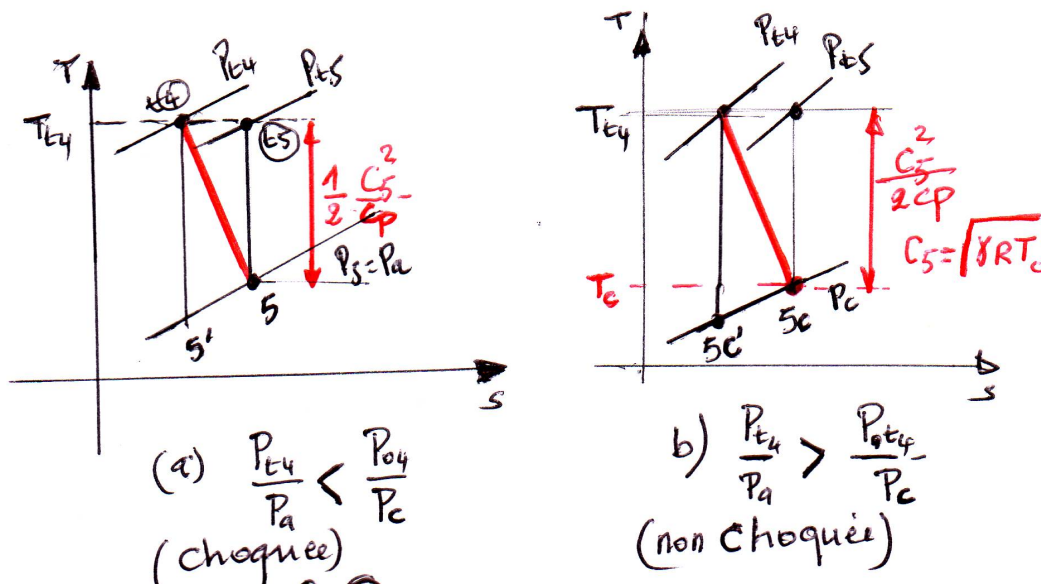 T
Pt4
Pt5
t4
Tt4
t5
1/2 C5²/Cp
P5=Pa
5
5'
s
(a) Pt4/Pa < Po4/Pc
(choquée)
T
Pt4
Pt5
Tt4
C5²/2Cp
C5=√γRTc
Tc
Pc
5c
5c'
s
b) Pt4/Pa > Pot4/Pc
(non Choquée)